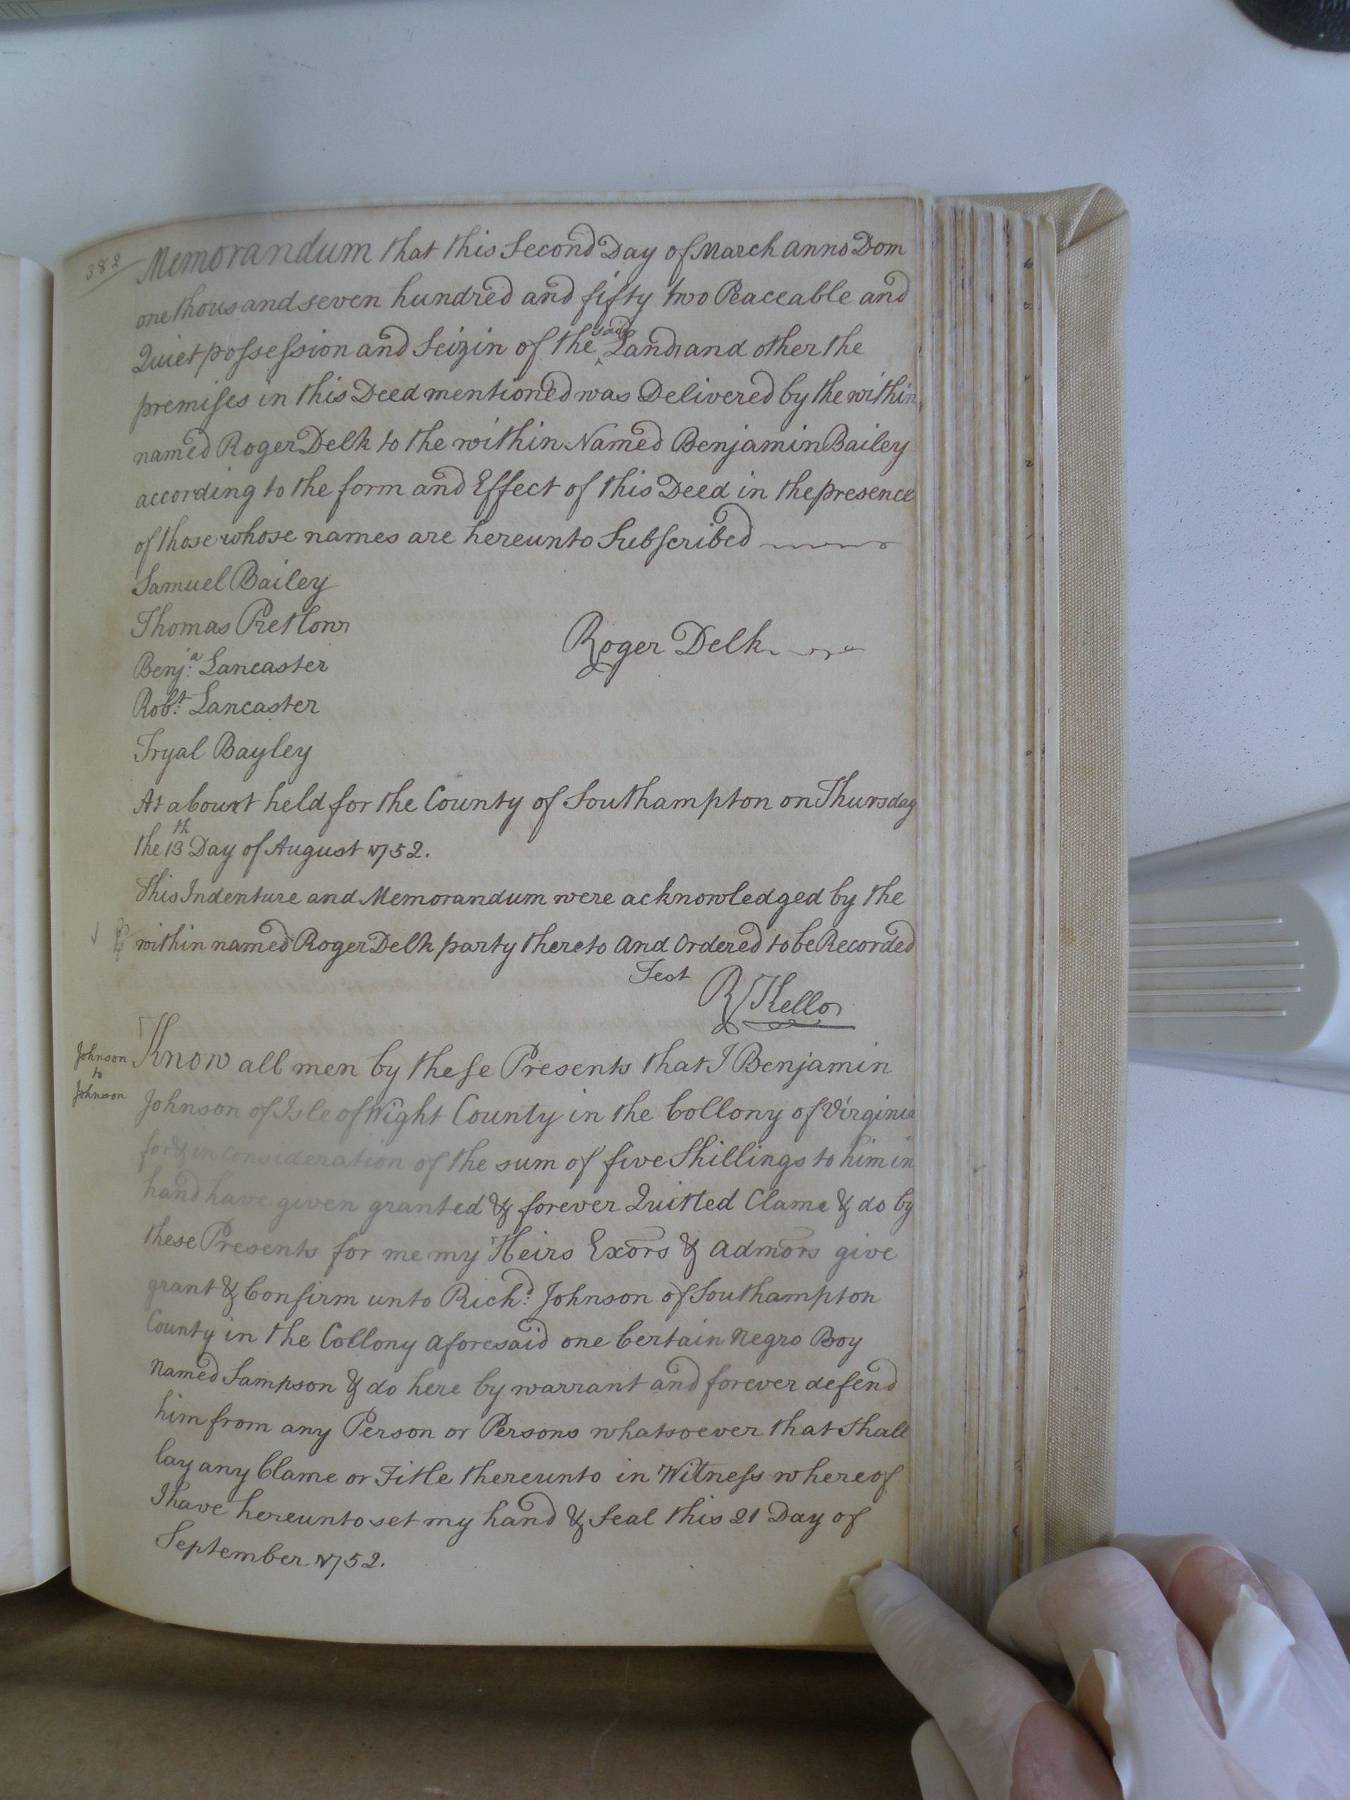 382
Memorandum that this Second Day of March Anno Dom
one thousand seven hundred and fifty two Peaceable and
Quiet possession and Seizin of the said Land and other the
premises in this Deed mentioned was Delivered by the within
named Roger Delk to the within Named Benjamin Bailey
according to the form and Effect of this Deed in the presence
of those whose names are hereunto Subscribed
Samuel Bailey
Thomas Pretlow
Roger Delk
Benj.a Lancaster
Rob.t Lancaster
Tryal Bayley
At a Court held for the County of Southampton on Thursday
the 13th Day of August 1752.
This Indenture and Memorandum were acknowledged by the
within named Roger Delk party thereto and Ordered to be Recorded
Test R Kello
Johnson
to
Johnson
Know all men by these Presents that I Benjamin
Johnson of Isle of Wight County in the Collony of Virginia
for & in Consideration of the sum of five Shillings to him in
hand have given granted & forever Quitted Clame & do by
these Presents for me my Heirs Exors & Admors give
grant & Confirm unto Rich.d Johnson of Southampton
County in the Collony aforesaid one Certain Negro Boy
Named Sampson & do here by warrant and forever defend
him from any Person or Persons whatsoever that Shall
lay any Clame or Title thereunto in Witness whereof
I have hereunto set my hand & Seal this 21 Day of
September 1752.